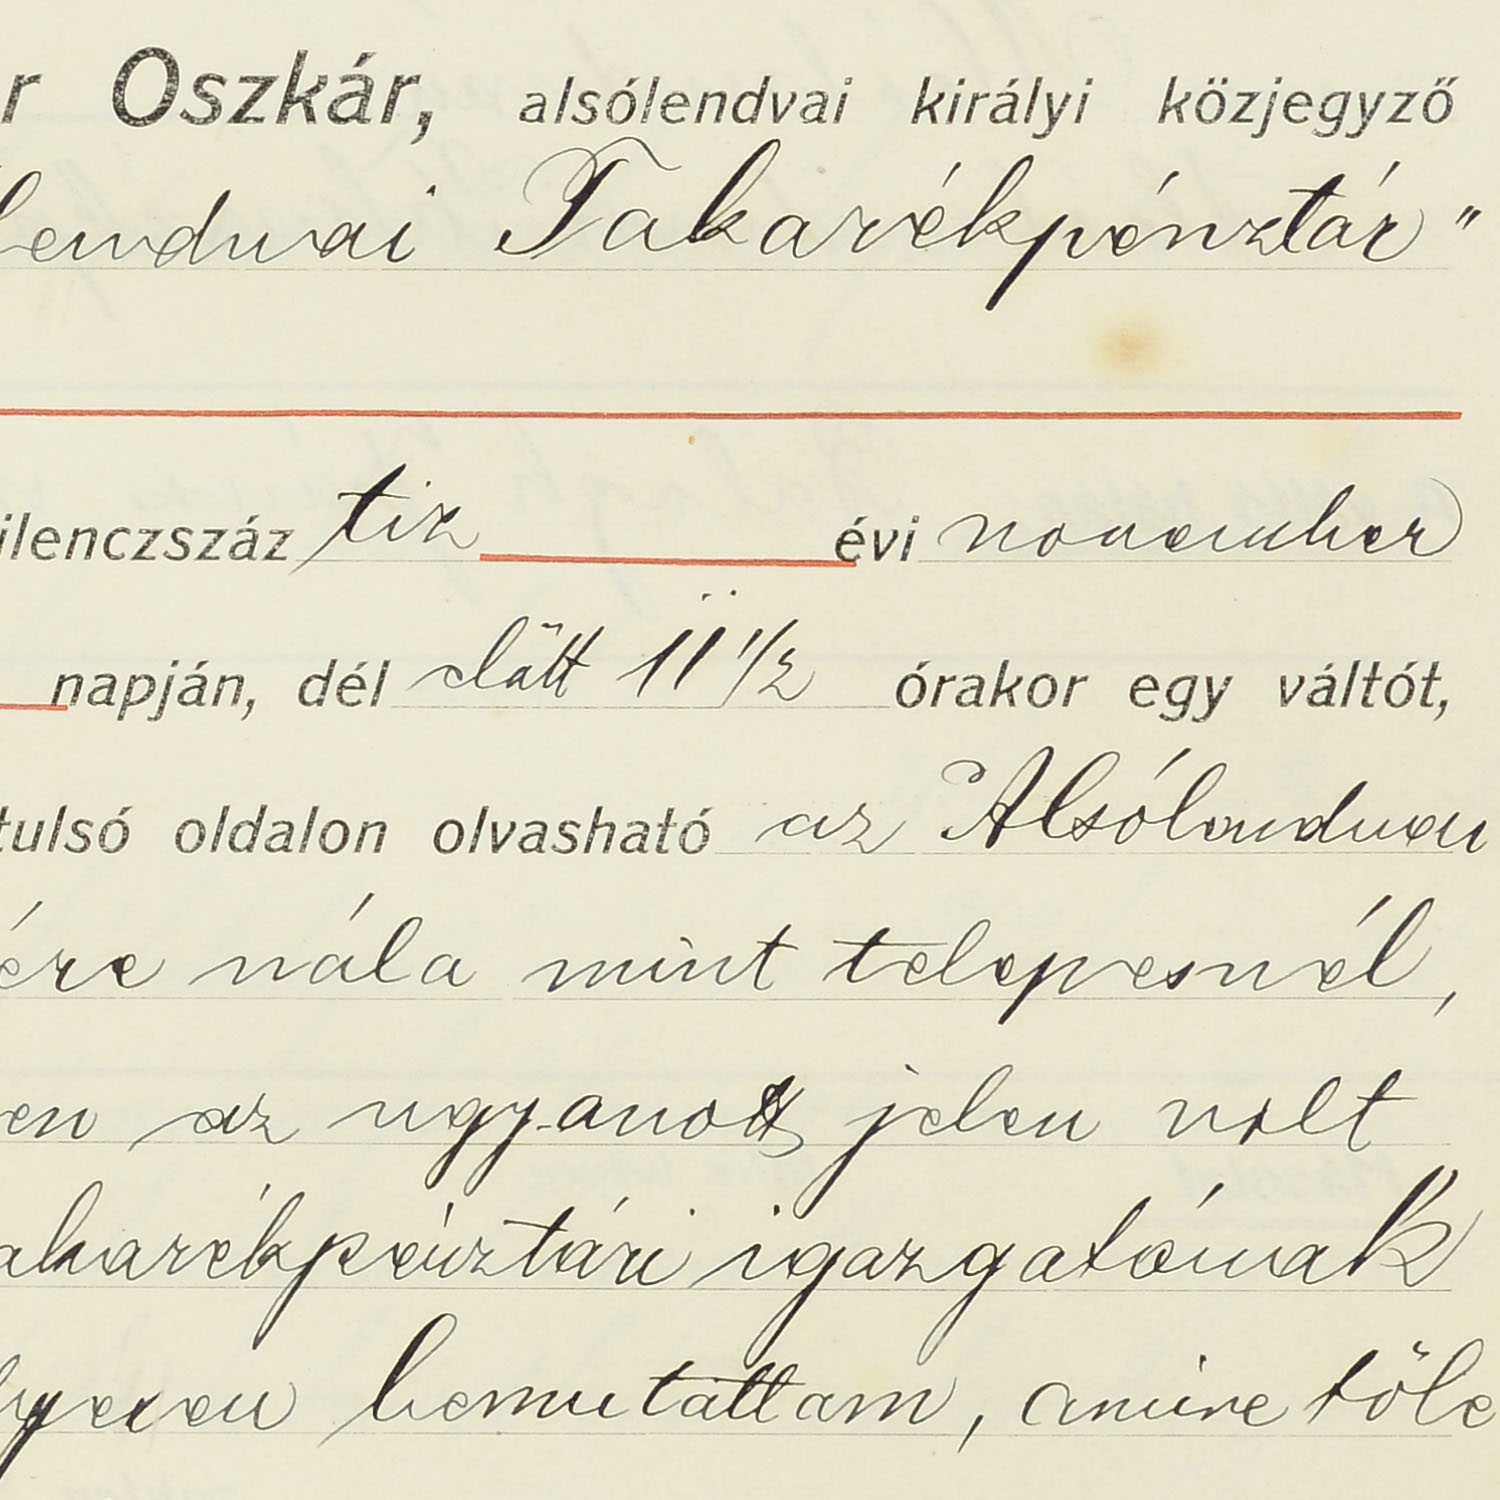 r Oszkár, alsólendvai királyi közjegyző
lendvai Takarékpénztár"
ilenczszáz tiz évi november
napján, dél előtt 11 1/2 órakor egy váltót,
tulsó oldalon olvasható az Alsólendvai
ére nála mint telepesnél,
en az ugyanott jelen volt
akarékpénztári igazgatónak
lyesen bemutattam, amire tőle